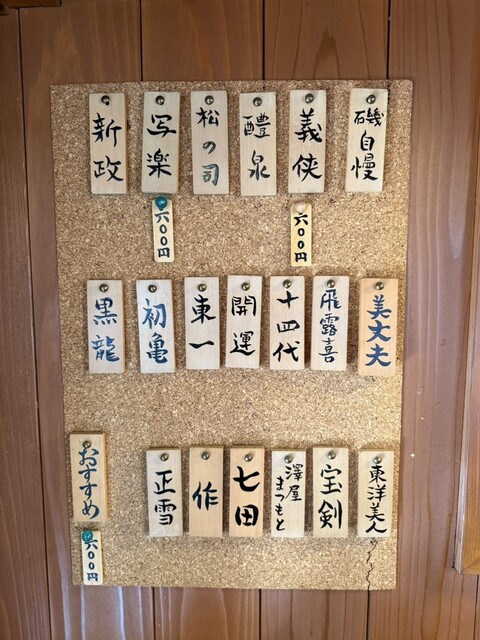 磯自慢
義侠
醴泉
松の司
写楽
新政
六〇〇円
六〇〇円
美丈夫
飛露喜
十四代
開運
東一
初亀
黒龍
東洋美人
宝剣
澤屋
まつもと
七田
作
正雪
おすすめ
六〇〇円